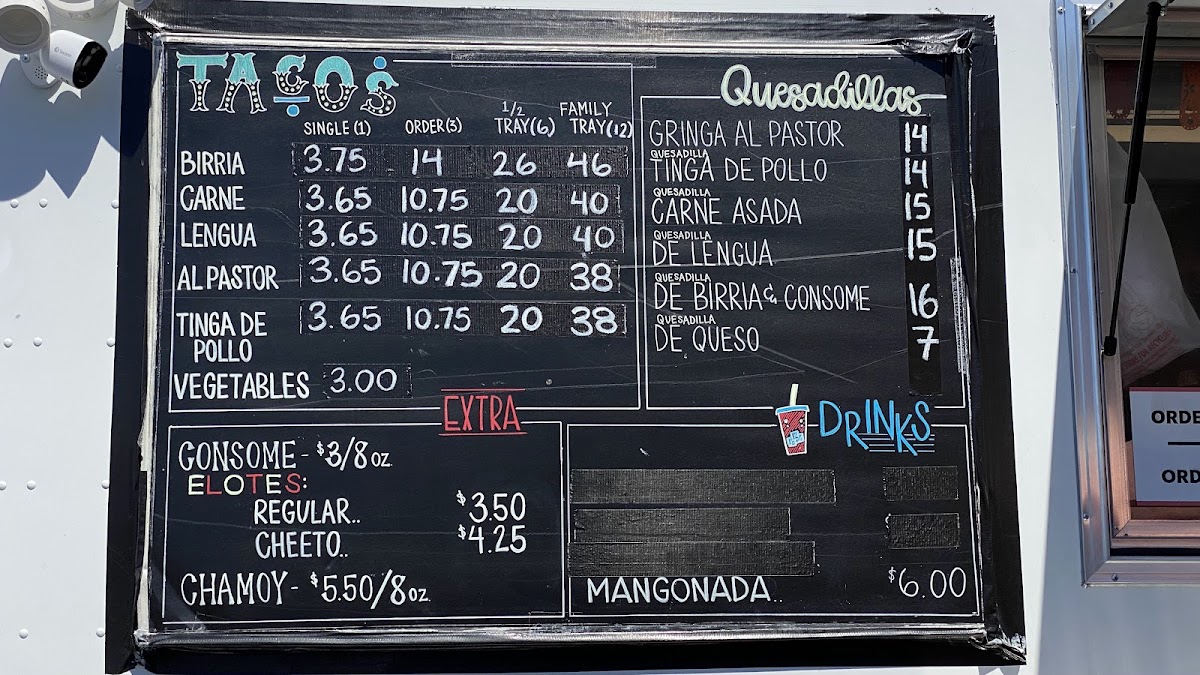 TACOS
SINGLE (1) ORDER (3) 1/2 TRAY (6) FAMILY TRAY (12)
BIRRIA 3.75 14 26 46
CARNE 3.65 10.75 20 40
LENGUA 3.65 10.75 20 40
AL PASTOR 3.65 10.75 20 38
TINGA DE POLLO 3.65 10.75 20 38
VEGETABLES 3.00
Quesadillas
GRINGA AL PASTOR 14
QUESADILLA
TINGA DE POLLO 14
QUESADILLA
CARNE ASADA 15
QUESADILLA
DE LENGUA 15
QUESADILLA
DE BIRRIA & CONSOME 16
QUESADILLA
DE QUESO 7
EXTRA
CONSOME - $3/8 OZ.
ELOTES:
REGULAR.. $3.50
CHEETO.. $4.25
CHAMOY - $5.50/8 OZ.
DRINKS
MANGONADA.. $6.00
ORDE
ORD